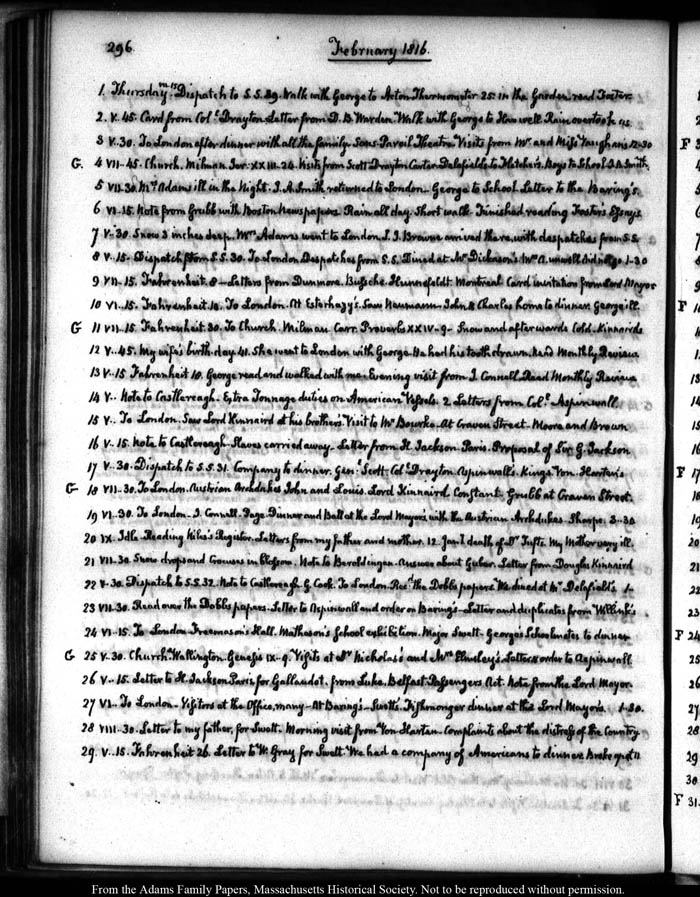 296
February 1816.
1. Thursday. Dispatch to S.S. 29. Walk with George to Acton Thermometer 25. in the Garden read Foster
2. V. 45. Card from Coll. Drayton. Letter from D. B. Warden Walk with George to Hanwell Rain overtook us.
3 V. 30. To London after dinner with all the family. Sans-Pareil Theatre Visits from Mr and Miss Vaughan's 12-30
G. 4 VII-45. Church. Milman Jer: XXIII-24. Visits from Scott Drayton Carter Delafields Fletchers. Boys to School. J. A. Smith.
5 VII. 30. Mrs Adams ill in the Night. J. A. Smith returned to London. George to School Letter to the Baring's.
6 VI-15. Note from Grubb with Boston Newspapers. Rain all day. Short walk. Finished reading Foster's Essays
7 V-30. Snow 3 inches deep. Mrs Adams went to London. J. J. Browne arrived there, with despatches from S.S.
8 V-15. Dispatch from S.S. 30. To London Despatches from S.S. Dined at Mr Dickason's. 1-30
9 VII-15. Fahrenheit. 8-Letters from Dunmore. Bussche. Hunnefeldt. Montreal Card invitation from Lord Mayor
10 VI..15. Fahrenheit 12. To London. At Esterhazy's. Saw Neumann. John & Charles home to dinner. George ill
G 11 VII..15. Fahrenheit. 30. To Church. Milman Carr. Proverbs XXIV-9- Snow and afterwards Cold. Kinnairds
12 V..45. My wife's birth-day 41. She went to London with George. He had his tooth drawn. Read Monthly Review
13 V..15 Fahrenheit 10. George read and walked with me. Evening visit from J. Connell. Read Monthly Review
14 V.. Note to Castlereagh. Extra Tonnage duties on American Vessels. 2 Letters from Coll. Aspinwall
15 V.. To London. Saw Lord Kinnaird at his brother's. Visit to Mr Bourke. At Craven Street. Moore and Brown
16 V..15. Note to Castlereagh. Slaves carried away. Letter from H. Jackson. Paris. Proposal of Sir G. Jackson
17 V..30. Dispatch to S.S. 31. Company to dinner. Gen: Scott. Coll. Drayton. Aspinwalls. Kings. Von-Harten's
G- 18 VII..30. To London. Austrian Archdukes John and Louis. Lord Kinnaird. Constant. Grubb at Craven Street.
19 VI..30. To London. J. Connell. Page. Dinner and Ball at the Lord Mayor's with the Austrian Archdukes. Sharpe. 3-30
20 IX. Idle. Reading Niles's Register. Letters from my father and mother. 12. Jan. death of Dr Tufts. My Mother very ill.
21 VII.30 Snow drops and Crocuses in blossom. Note to Beroldingen. Answer about Geber. Letter from Douglas Kinnaird
22 V-30. Dispatch to S.S. 32. Note to Castlereagh. G. Cook. To London. Recd. the Dobbs papers We dined at Mr Delafield's 1-
23 VII-30. Read over the Dobbs papers. Letter to Aspinwall and order on Baring's-Letter and duplicates from Willink's
24 VI-15. To London Freemason's Hall. Matheson's School exhibition. Major Swett. George's Schoolmates to dinner
G 25 V-30. Church. Wallington. Genesis IX-9. Visits at Dr Nicholas's and Mrs Elmsley's. Letters order to Aspinwall
26 V..15. Letter to H. Jackson Paris for Gallaudet. from Luke. Belfast. Passengers Act. Note from the Lord Mayor.
27 VI.. To London. Visitors at the Office, many. At Baring's. Swetts. Fishmonger dinner at the Lord Mayor's. 1-30.
28 VIII-30. Letter to my father, for Swett. Morning visit from Von-Harten. Complaints about the distress of the Country
29. V..15. Fahrenheit 26. Letter to W. Gray for Swett. We had a company of Americans to dinner. Broke up at 11
F
F
F
F
F 31.
From the Adams Family Papers, Massachusetts Historical Society. Not to be reproduced without permission.